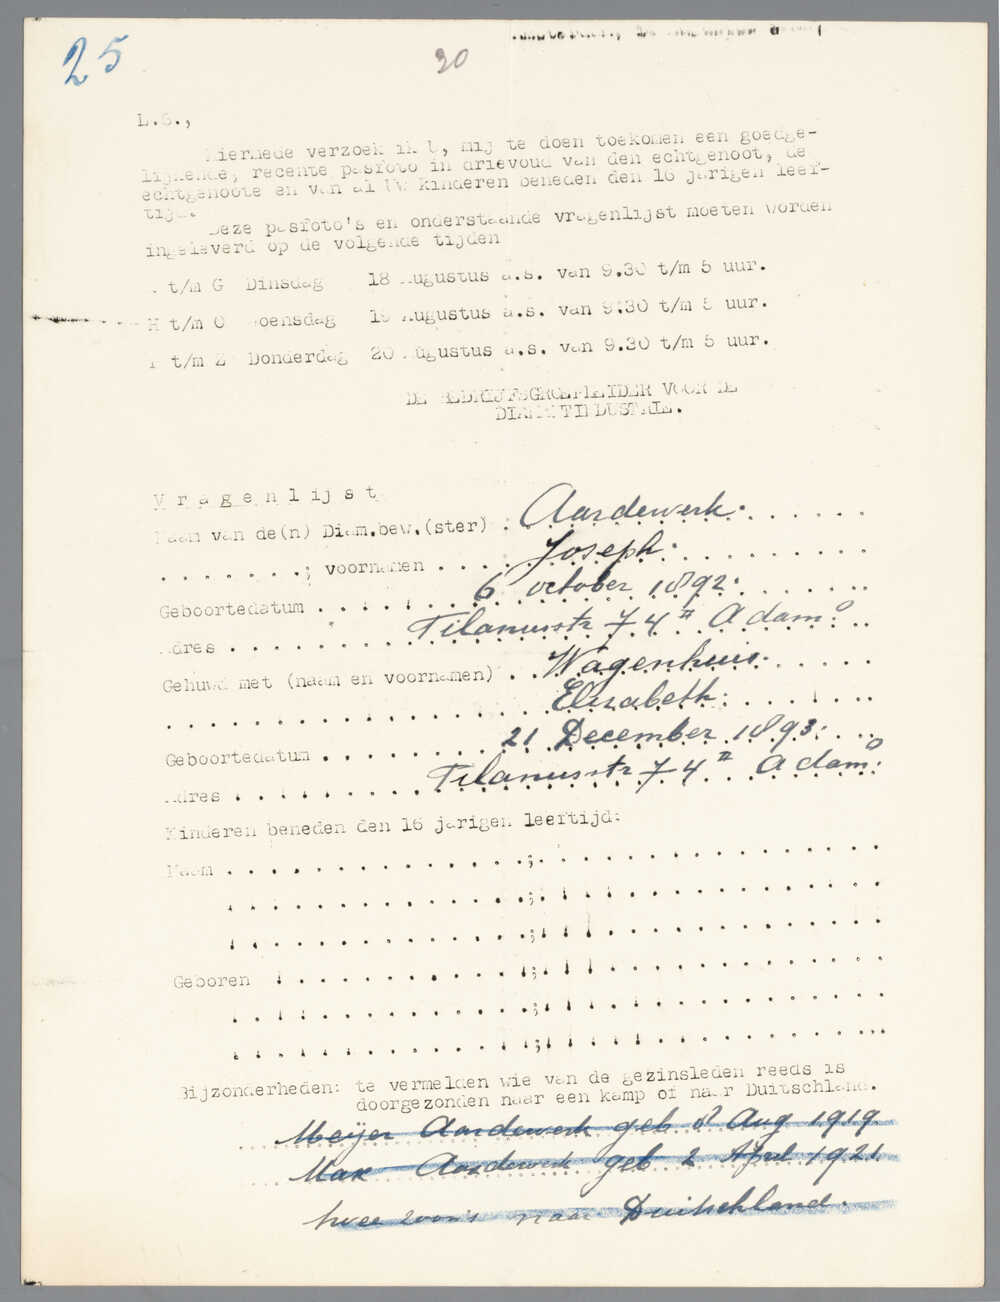 25
20
L.S.,
Hiermede verzoek ik U, mij te doen toekomen een goedge-
lijkende, recente pasfoto in drievoud van den echtgenoot, de
echtgenoote en van al Uw kinderen beneden den 16 jarigen leef-
tijd.
Deze pasfoto's en onderstaande vragenlijst moeten worden
ingeleverd op de volgende tijden
A t/m G Dinsdag 18 Augustus a.s. van 9.30 t/m 5 uur.
H t/m O Woensdag 19 Augustus a.s. van 9.30 t/m 5 uur.
P t/m Z Donderdag 20 Augustus a.s. van 9.30 t/m 5 uur.
DE BEDRIJFSGROEPLEIDER VOOR DE
DIAMANTINDUSTRIE.
Vragenlijst
Naam van de(n) Diam.bew.(ster) . Aardewerk.
. . . . . . . .; voornamen . . . . Joseph.
Geboortedatum . . . . . 6 october 1892.
Adres . . . . . Tilanusstr 74 II Adam.
Gehuwd met (naam en voornamen) . . Wagenhuis.
. . . . . Elisabeth.
Geboortedatum . . . . . 21 December 1893.
Adres . . . . . Tilanusstr 74 II Adam.
Kinderen beneden den 16 jarigen leeftijd:
Naam . . . . . . . . . . . . . . . . ; . . . . . . . . . . . . . . . .
. . . . . . . . . . . . . . . . ; . . . . . . . . . . . . . . . .
. . . . . . . . . . . . . . . . ; . . . . . . . . . . . . . . . .
Geboren . . . . . . . . . . . . . ; . . . . . . . . . . . . . . . .
. . . . . . . . . . . . . . . . ; . . . . . . . . . . . . . . . .
. . . . . . . . . . . . . . . . ; . . . . . . . . . . . . . . . .
Bijzonderheden: te vermelden wie van de gezinsleden reeds is
doorgezonden naar een kamp of naar Duitschland.
Meijer Aardewerk geb 8 Aug 1919
Max Aardewerk geb 2 April 1921
twee zoon's naar Duitschland.